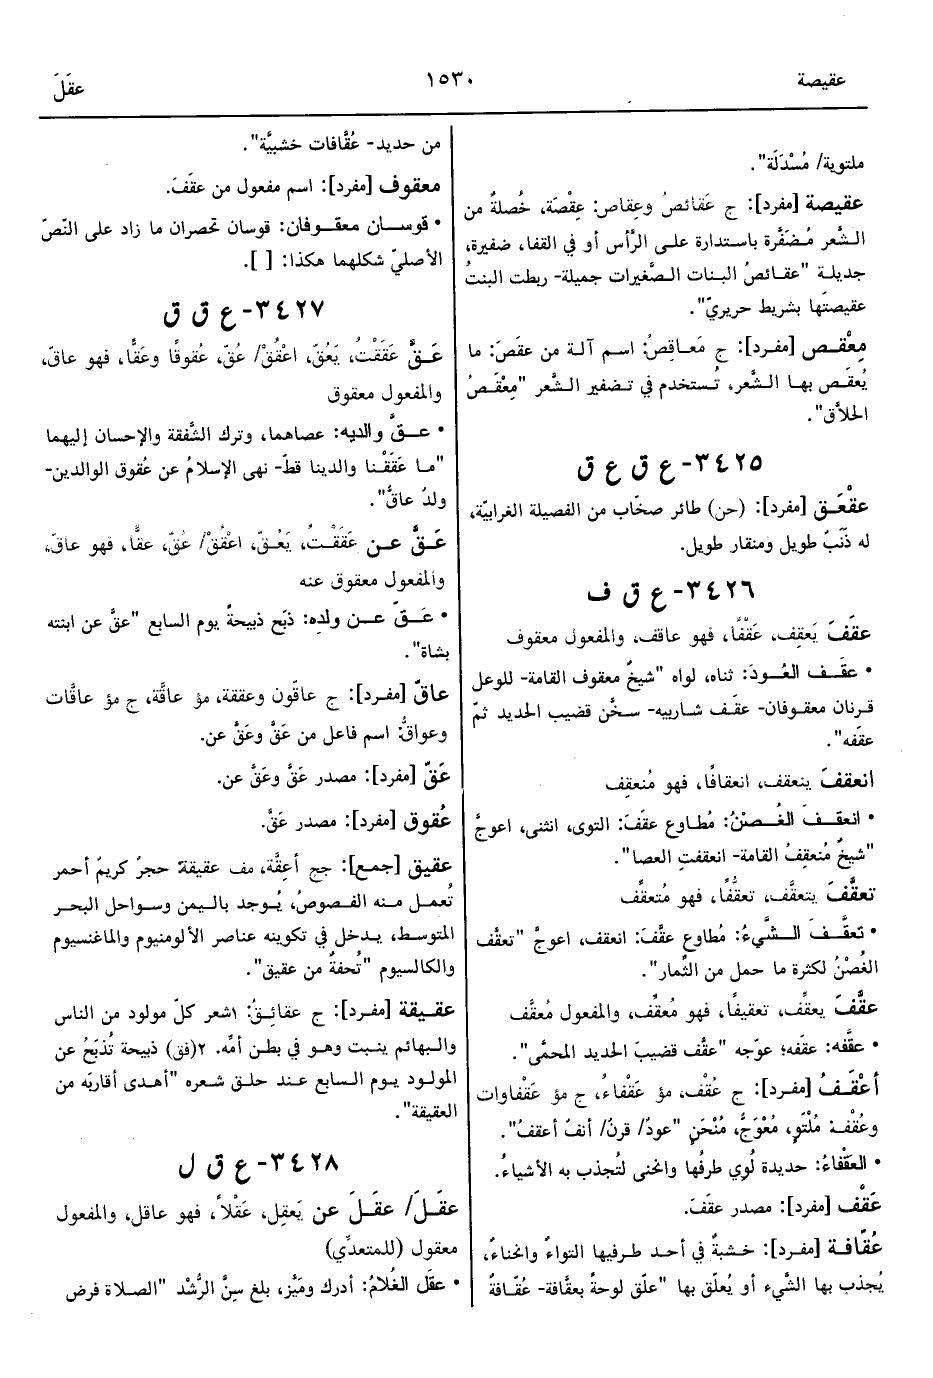 عقيصة
١٥٣٠
عقَلَ
ملتوية/ مُسْدَلَة".
عقيصة [مفرد]: ج عَقائصُ وعِقاص: عِقْصَة، خُصلةٌ من
الشَّعر مُضَفَّرة باستدارة على الرَّأس أو في القفا، ضفيرة،
جديلة "عقائصُ البنات الصَّغيرات جميلة- ربطت البنتُ
عقيصتَها بشريط حريريّ".
مِعْقص [مفرد]: ج مَعاقصُ: اسم آلة من عقَصَ: ما
يُعقَص بها الشَّعر، تُستخدم في تضفير الشَّعر "مِعْقَصُ
الحلاّق".
٣٤٢٥- ع ق ع ق
عقْعَق [مفرد]: (حن) طائر صخّاب من الفصيلة الغرابيّة،
له ذَنَبٌ طويل ومنقار طويل.
٣٤٢٦- ع ق ف
عقَفَ يَعقِف، عَقْفًا، فهو عاقف، والمفعول معقوف
• عقَف العُودَ: ثناه، لواه "شيخٌ معقوف القامة- للوعل
قرنان معقوفان- عقَف شاربيه- سخَّن قضيب الحديد ثمّ
عقَفه".
انعقفَ ينعقف، انعقافًا، فهو مُنعقِف
• انعقف الغُصنُ: مُطاوع عقَفَ: التوى، انثنى، اعوجَّ
"شيخٌ مُنعقِفُ القامة- انعقفتِ العصا".
تعقَّفَ يتعقَّف، تعقُّفًا، فهو مُتعقِّف
• تعقَّف الشَّيءُ: مُطاوع عقَّفَ: انعقف، اعوجَّ "تعقَّف
الغُصْنُ لكثرة ما حمل من الثِّمار".
عقَّفَ يعقِّف، تعقيفًا، فهو مُعقِّف، والمفعول مُعقَّف
• عقَّفه: عقَفه؛ عوّجه "عقَّف قضيبَ الحديد المحمَّى".
أعْقَفُ [مفرد]: ج عُقْف، مؤ عَقْفاءُ، ج مؤ عَقْفاوات
وعُقْف: مُلْتَوٍ، مُعْوَجٌّ، مُنْحَنٍ "عودٌ/ قرنٌ/ أنفٌ أعقفُ".
• العَقْفاءُ: حديدة لُوي طرفُها وانحنى لتُجذب به الأشياءُ.
عَقْف [مفرد]: مصدر عقَفَ.
عُقّافة [مفرد]: خشبةٌ في أحد طرفيها التواءٌ وانحناءٌ،
يُجذب بها الشَّيء أو يُعلّق بها "علّق لوحةً بعقَّافة- عُقّافةٌ
من حديد- عُقَّافات خشبيَّة".
معقوف [مفرد]: اسم مفعول من عقَفَ.
• قوسان معقوفان: قوسان تحصران ما زاد على النّصّ
الأصليّ شكلهما هكذا: [ ].
٣٤٢٧- ع ق ق
عَقَّ عَقَقْتُ، يَعُقّ، اعْقُقْ/ عُقّ، عُقوقًا وعَقًّا، فهو عاقّ،
والمفعول معقوق
• عقَّ والديه: عصاهما، وترك الشَّفقة والإحسان إليهما
"ما عَقَقْنا والدينا قطّ- نهى الإسلامُ عن عُقوق الوالدين-
ولدٌ عاقٌّ".
عَقَّ عن عَقَقْتُ، يَعُقّ، اعْقُقْ/ عُقّ، عقًّا، فهو عاقّ،
والمفعول معقوق عنه
• عَقَّ عن ولدِه: ذبَح ذبيحةً يوم السابع "عقَّ عن ابنته
بشاة".
عاقّ [مفرد]: ج عاقّون وعققة، مؤ عاقَّة، ج مؤ عاقَّات
وعواقُّ: اسم فاعل من عَقَّ وعَقَّ عن.
عَقّ [مفرد]: مصدر عَقَّ وعَقَّ عن.
عُقوق [مفرد]: مصدر عَقَّ.
عقيق [جمع]: جج أعِقَّة، مف عقيقة: حجرٌ كريمٌ أحمر
تُعمل منه الفصوصُ، يُوجد باليمن وسواحل البحر
المتوسط، يدخل في تكوينه عناصر الألومنيوم والماغنسيوم
والكالسيوم "تُحفةٌ من عقيق".
عقيقة [مفرد]: ج عقائقُ: ١شعر كلّ مولود من الناس
والبهائم ينبت وهو في بطن أمّه. ٢(فق) ذبيحة تُذبَحُ عن
المولود يوم السابع عند حلق شعره "أهدى أقاربَه من
العقيقة".
٣٤٢٨- ع ق ل
عقَلَ/ عقَلَ عن يَعقِل، عَقْلاً، فهو عاقل، والمفعول
معقول (للمتعدِّي)
• عقَل الغُلامُ: أدرك وميَّز، بلغ سِنَّ الرُّشْد "الصلاة فرض